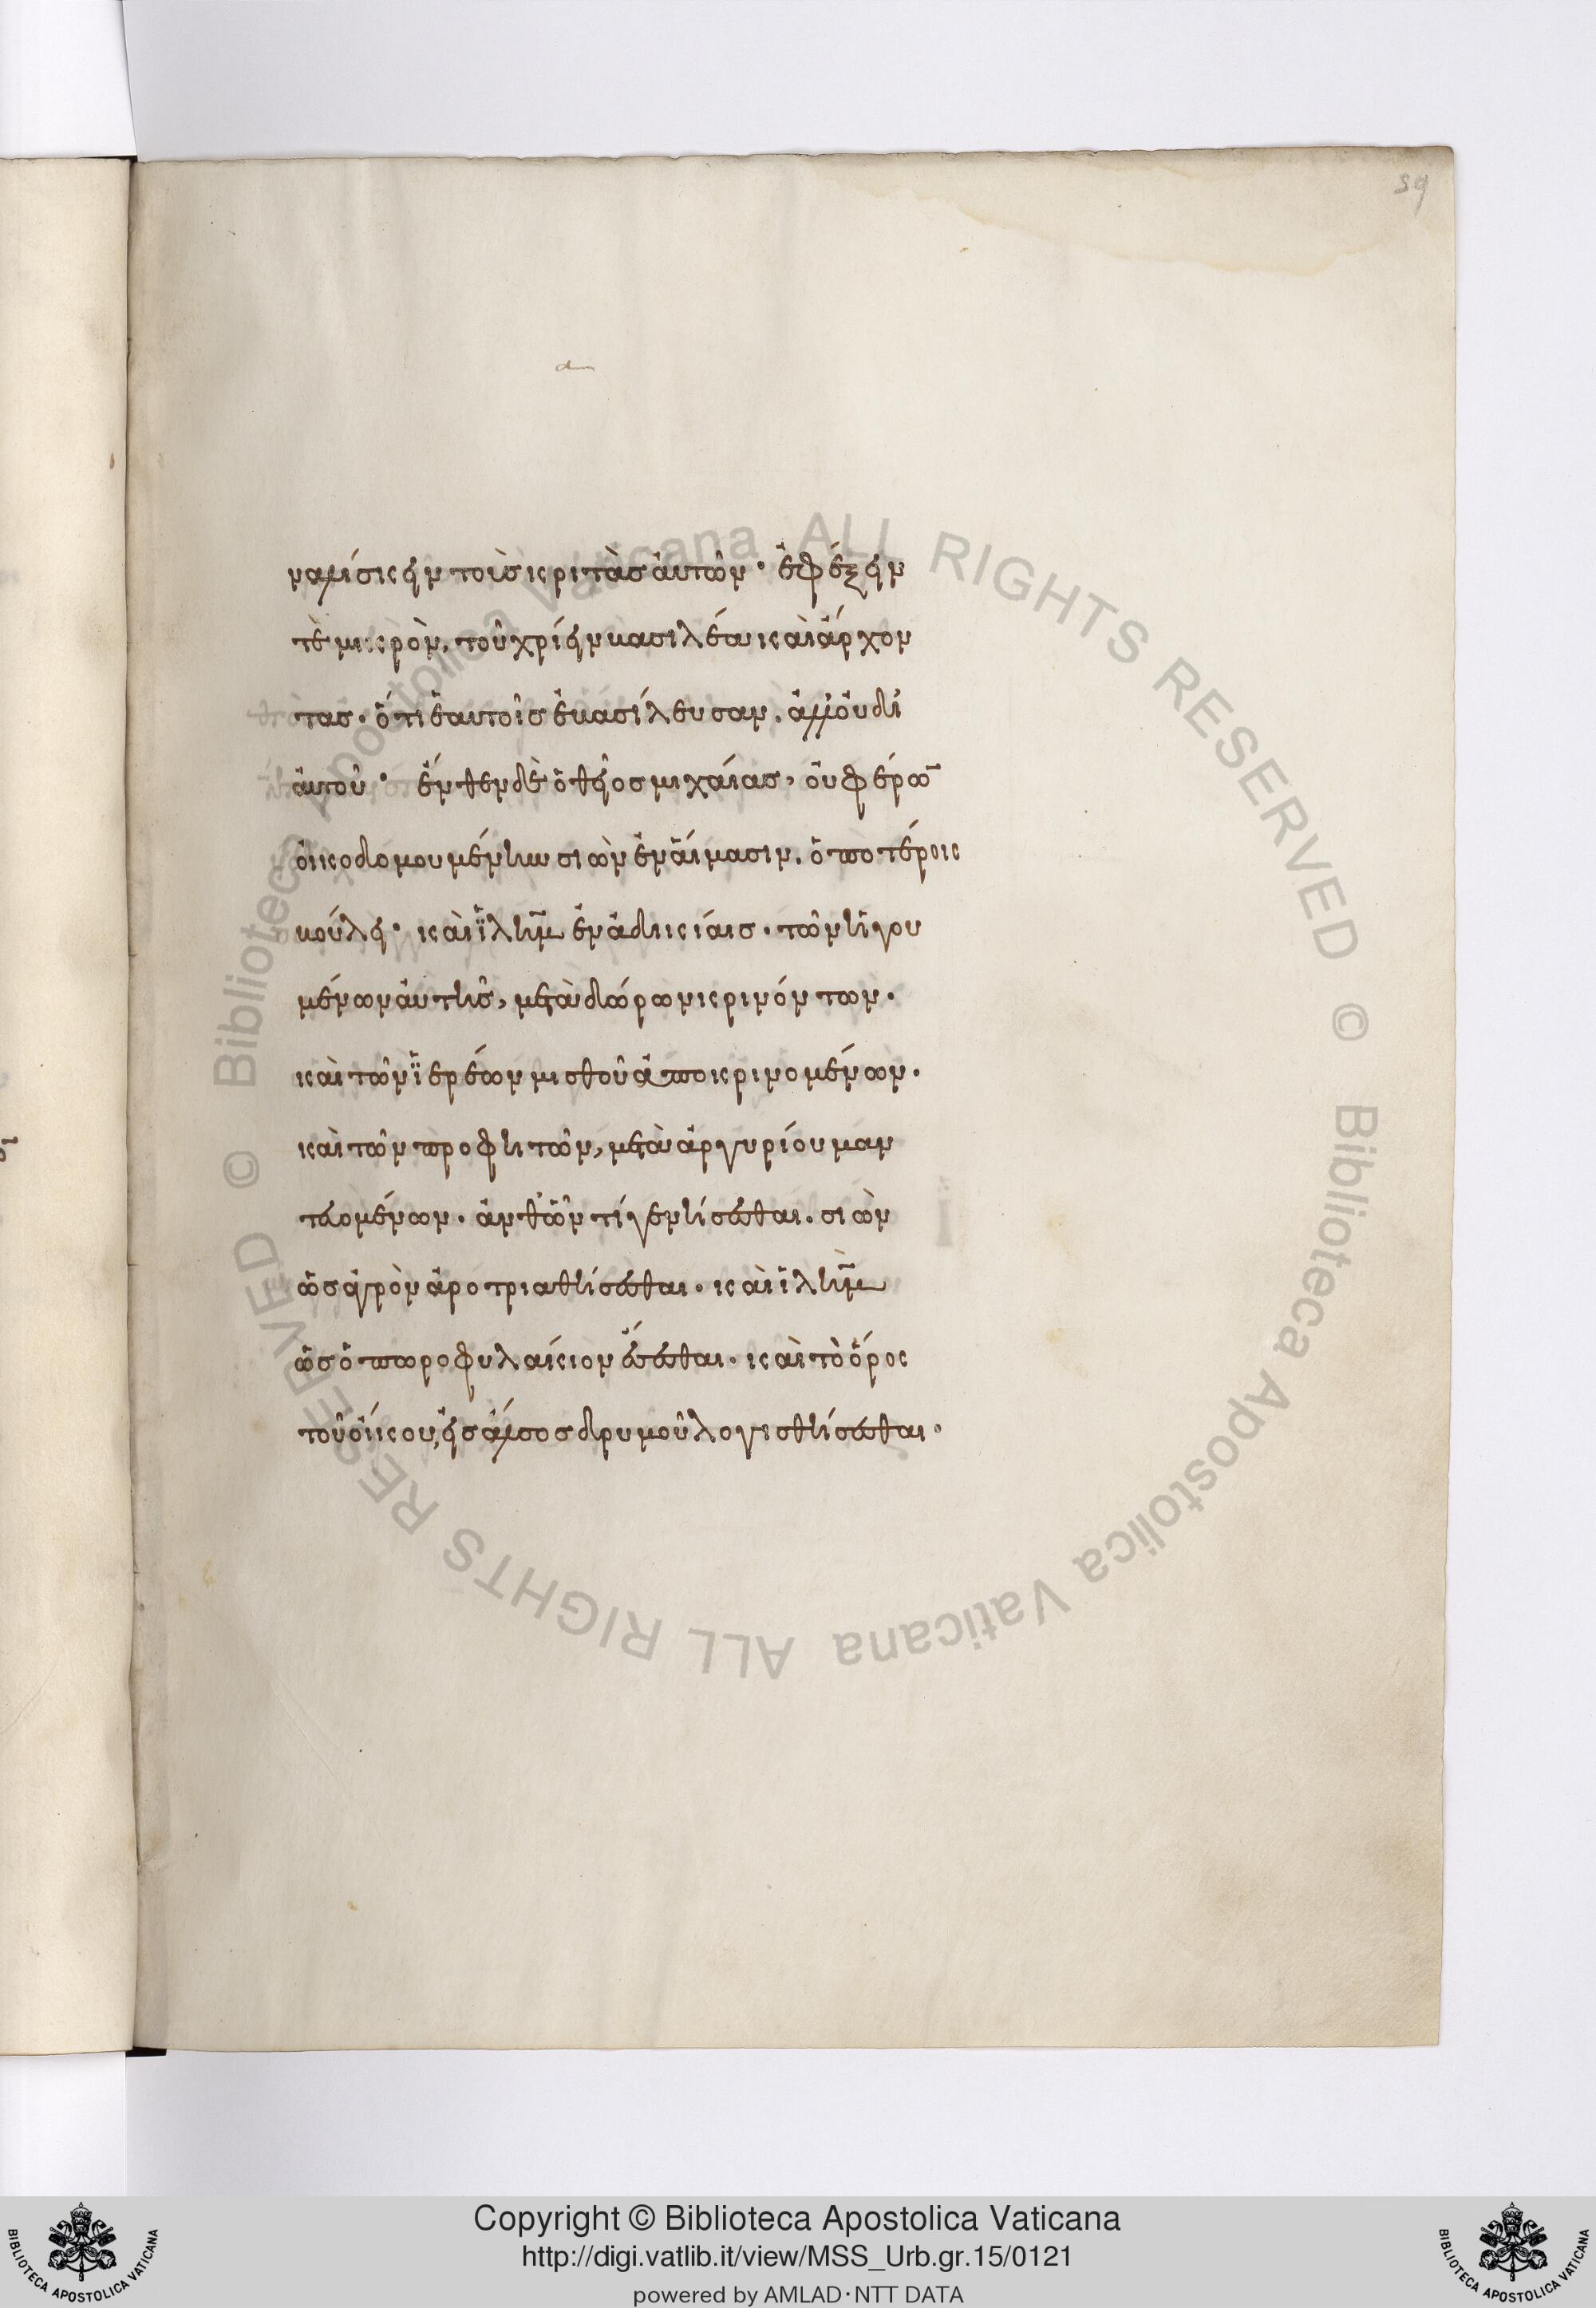 59
ναλίσκειν τοὺς κριτὰς αὐτῶν· ἐφέξειν
τὲ μικρὸν, τοῦ χρίειν βασιλέα καὶ ἄρχον
τας· ὅτι ἑαυτοῖς ἐβασίλευσαν, ἀλλ' οὐ δι'
αὐτοῦ· ἔνθεν δὲ ὁ θεῖος μιχαίας, οὐ φέρω̅
οἰκοδομουμένην σιὼν ἐν αἵμασιν, ὁποτέροις
βούλει· καὶ ἱλη̅μ ἐν ἀδικίαις· τῶν ἡγου
μένων αὐτῆς, μετὰ δώρων κρινόντων·
καὶ τῶν ἱερέων μισθοῦ ἀποκρινομένων·
καὶ τῶν προφητῶν, μετὰ ἀργυρίου μαν
τευομένων· ἀνθ' ὧν τί γενήσεσθαι· σιὼν
ὡς ἀγρὸν ἀροτριαθήσεσθαι· καὶ ἱλη̅μ
ὡς ὀπωροφυλάκιον ἔσεσθαι· καὶ τὸ ὄρος
τοῦ οἴκου, εἰς ἄλσος δρυμοῦ λογισθήσεσθαι·
© Biblioteca Apostolica Vaticana ALL RIGHTS RESERVED © Biblioteca Apostolica Vaticana ALL RIGHTS RESERVED
Copyright © Biblioteca Apostolica Vaticana
http://digi.vatlib.it/view/MSS_Urb.gr.15/0121
powered by AMLAD·NTT DATA
BIBLIOTECA APOSTOLICA VATICANA
BIBLIOTECA APOSTOLICA VATICANA